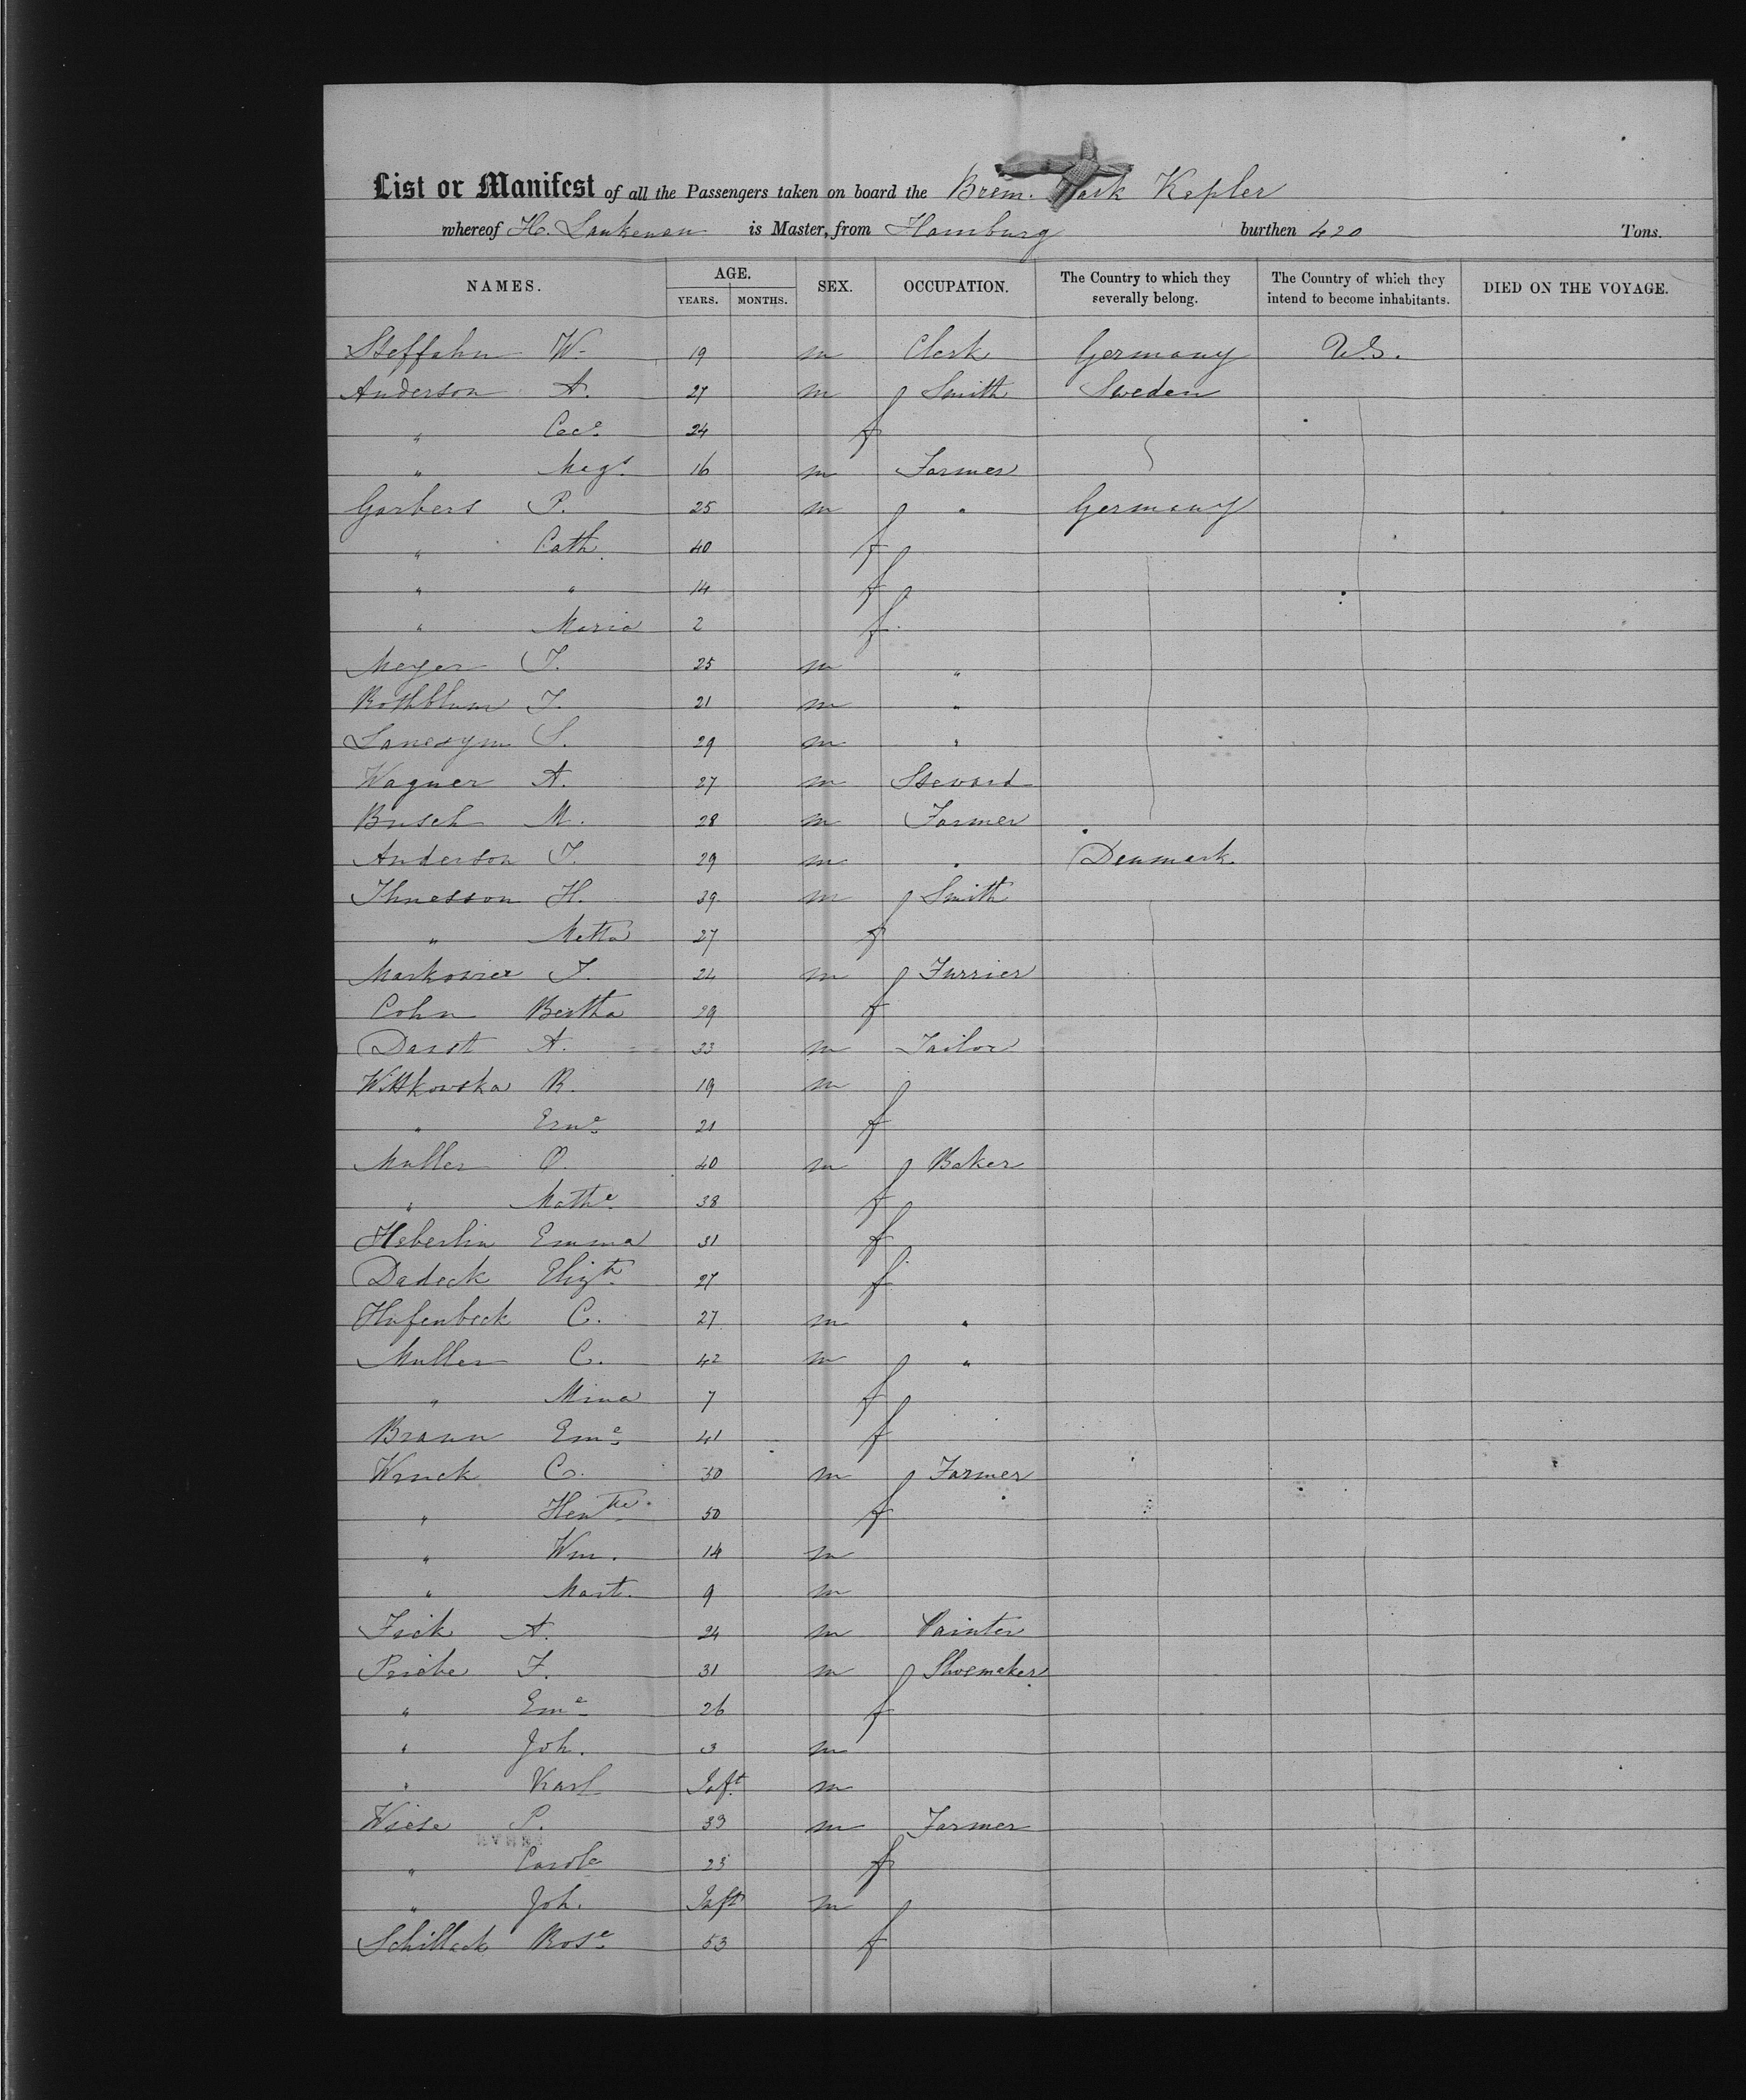 List or Manifest of all the Passengers taken on board the Brem. Bark Kepler
whereof H. Lankenau is Master, from Hamburg burthen 420 Tons.
NAMES. AGE. YEARS. MONTHS. SEX. OCCUPATION. The Country to which they severally belong. The Country of which they intend to become inhabitants. DIED ON THE VOYAGE.
Steffahn W. 19 m Clerk Germany U.S.
Anderson A. 27 m Smith Sweden
" Cece 24 f
" Mags 16 m Farmer
Garbers P. 25 m " Germany
" Cath. 40 f
" " 14 f
" Maria 2 f
Meyer J. 25 m "
Rothblum J. 21 m "
S. 29 m "
Wagner A. 27 m Steward
Busch M. 28 m Farmer
Anderson J. 29 m " Denmark.
H. 39 m Smith
" Metta 27 f
J. 24 m Furrier
Cohn Bertha 29 f
Darst A. 33 m Tailor
Wittkowska R. 19 m
" Erne 21 f
Muller O. 40 m Baker
" Mathe 38 f
Heberlin Emma 31 f
Dadeck Elizth 27 f
Hufenbeck C. 27 m "
Muller C. 42 m "
" Mina 7 f
Braun Eme 41 f
Wruck C. 50 m Farmer
" Hentte 50 f
" Wm. 14 m
" Mart. 9 m
Fick A. 24 m Painter
Priebe F. 31 m Shoemaker
" Eme 26 f
" Joh. 3 m
" Karl Inft m
Wiese P. 33 m Farmer
" Carole 23 f
" Joh. Inft m
Schillack Rose 53 f